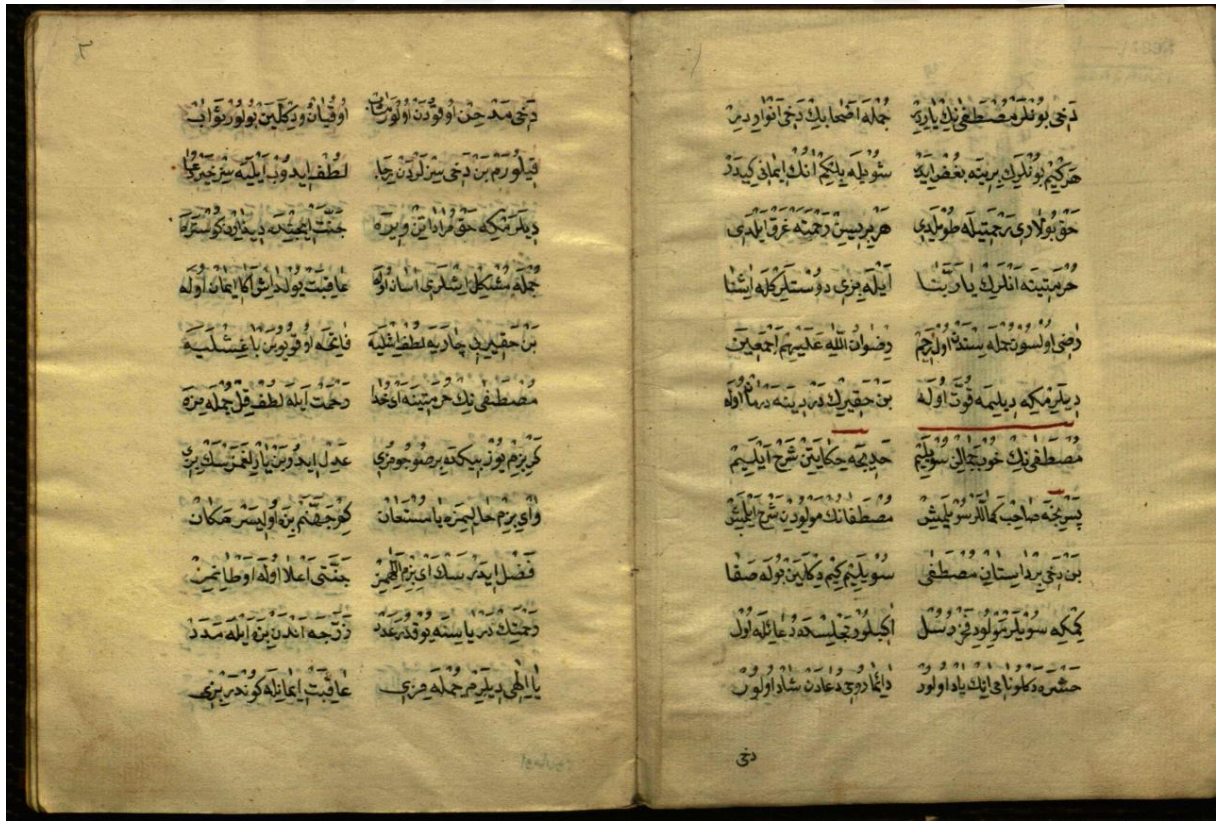 دخی بونلر مصطفی نك یاریدر جمله اصحابك دخی انواریدر
هركیم بونلرك برینه بغض ایده شویله بیلكم انك ایمانی كیدر
حق بولاری رحمتیله طویلدی هر بریسین رحمته غرق ایلدی
حرمتینه انلرك یا ربنا ایله بزی دوستلركله اشنا
راضی اولسون جمله سندن اول رحیم رضوان الله علیهم اجمعین
دیلرمكه دیلیمه قوت اوله بن حقیرك دردینه درمان اوله
مصطفی نك خوب جمالن سویلیم خدیجه حكایتن شرح ایلیم
پس نیجه صاحب كماللر سویلمش مصطفانك مولودن شرح ایلمش
بن دخی بر داستان مصطفی سویلیم كیم دكلین بوله صفا
كمكه سویلر مولود فخر رسل اكیلور مجلسده دعائله اول
حشره دكلو نامی انك یاد اولور دائما روحی دعادن شاد اولور
دخی
٢
دخی مدحن اوقودن اولور اوقیان و دكلین بولور ثواب
قیلورم بن دخی سزلردن رجا لطف ایدوب ایلیه سز خیر دعا
دیلرمكه حق مراداتن ویره جنت ایچنده دیدارن كوستره
جمله مشكل ایشلری اسان اوله عاقبت یولداش اكا ایمان اوله
بن حقیری چاریه لطف ایلیه فاتحه اوقویوبن باغشلیه
مصطفی نك حرمتینه ای خدا رحمت ایله لطف قل جمله مزه
كر بزم یوز بیكده بر صوجومزی عدل ایدوبن یارلغمزسك بزی
وای بزم حالیمزه یا مستعان كر جهنم بزه اولیسر مكان
فضل ایدرسك ای بزم اللهمز جنتی اعلا اوله اوطاغمز
رحمتك دریاسنه یوقدر عدد ذرجه اندن بزه ایله مدد
یا الهی دیلرم جمله مزی عاقبت ایمانله كوندر بزی